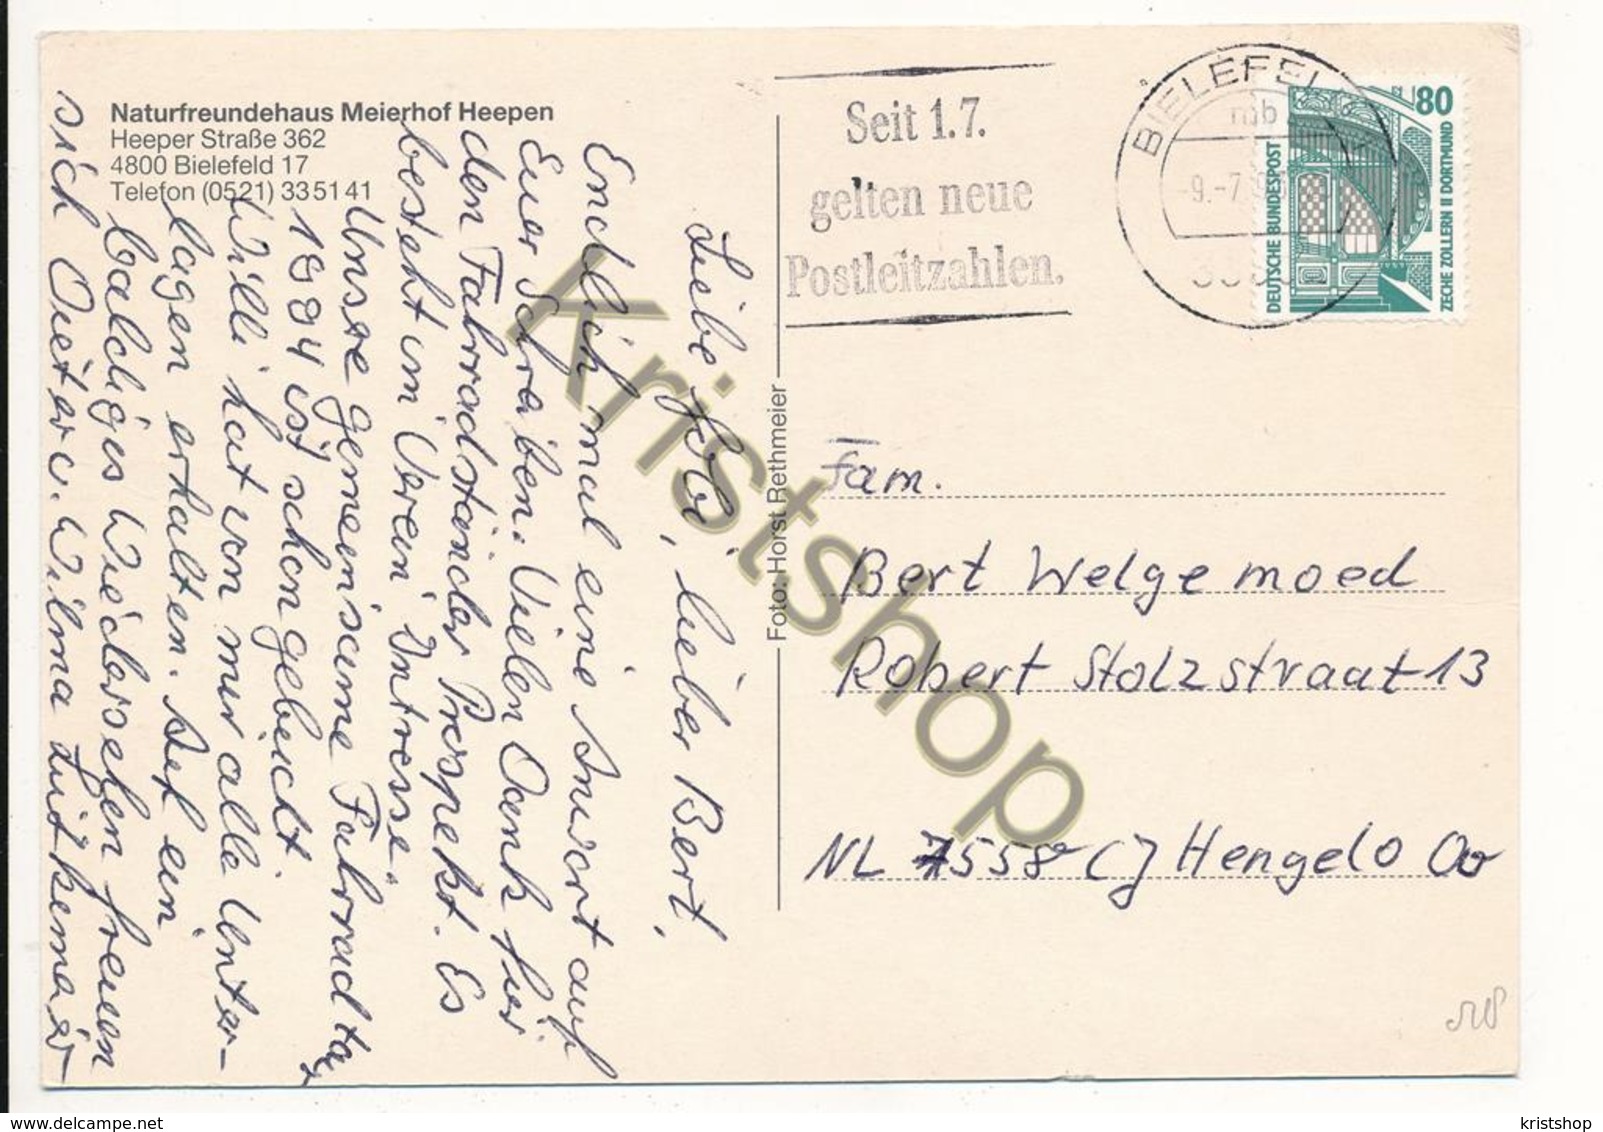 Naturfreundehaus Meierhof Heepen
Heeper Straße 362
4800 Bielefeld 17
Telefon (0521) 335141
Liebe Jobi, lieber Bert,
Endlich mal eine Antwort auf
Euer Schraiben. Vielen Dank für
den Fahrradständer Prospekt. Es
besteht im Verein "Intresse"
Unsre gemeinsame Fahrrad tour
1994 ist schon gebucht
Willi hat von mir alle Unter-
lagen erhalten. Auf ein
baldiges Wiedersehen freuen
sich Dieter u. Wilma Lütkemeier
Foto: Horst Rethmeier
Seit 1.7.
gelten neue
Postleitzahlen.
BIELEFELD
mb
-9.-7.93
DEUTSCHE BUNDESPOST
80
ZECHE ZOLLERN II DORTMUND
Fam.
Bert Welgemoed
Robert Stolzstraat 13
NL 7558 CJ Hengelo Ov
Kristshop
www.delcampe.net
kristshop